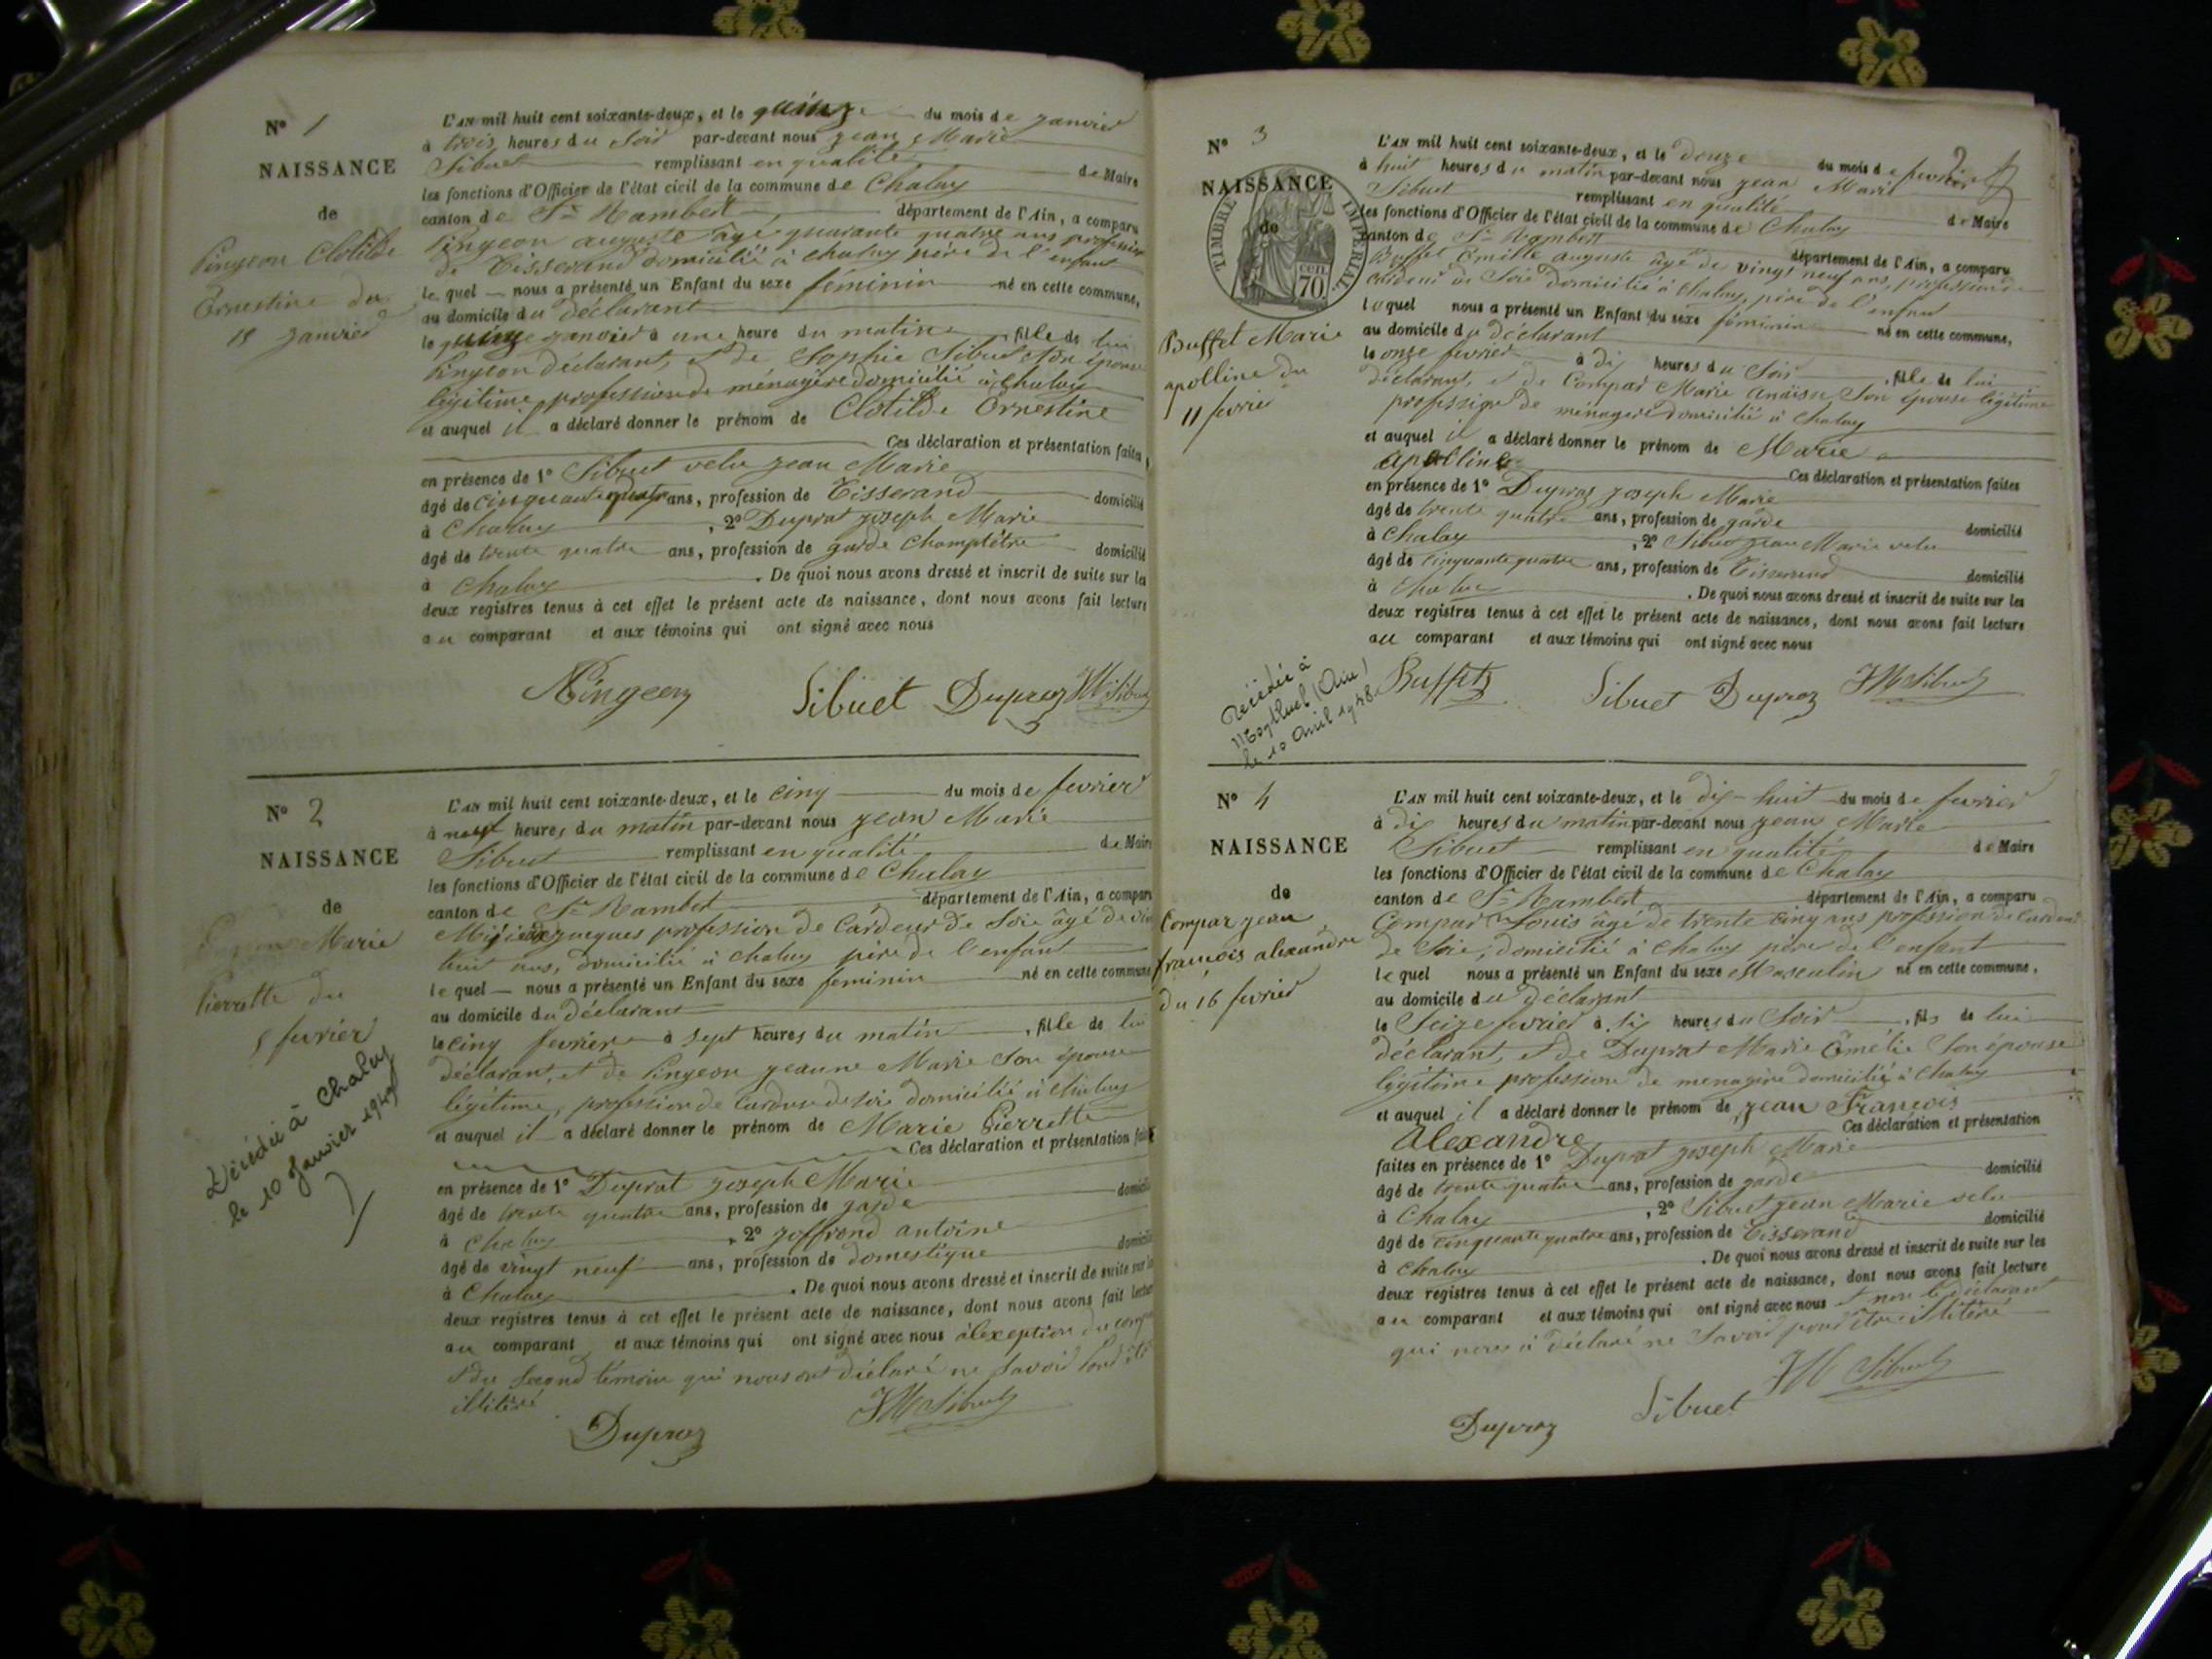 N° 1
NAISSANCE
de
Pingeon Clotilde
Ernestine du
15 janvier
L'AN mil huit cent soixante-deux, et le quinze du mois de janvier
à trois heures du soir par-devant nous jean Marie
Sibuet remplissant en qualité de Maire
les fonctions d'Officier de l'état civil de la commune de Chaley
canton de St Rambert département de l'Ain, a comparu
Pingeon auguste âgé quarante quatre ans profession
de Tisserand domicilié à chaley père de l'enfant
le quel nous a présenté un Enfant du sexe féminin né en cette commune,
au domicile du déclarant
le quinze janvier à une heure du matin fille de lui
Pingeon déclarant, et de Sophie Sibuet son épouse
légitime profession de ménagère domicilié à Chaley
et auquel il a déclaré donner le prénom de Clotilde Ernestine
Ces déclaration et présentation faites
en présence de 1° Sibuet velu jean Marie
âgé de cinquante quatre ans, profession de Tisserand domicilié
à Chaley, 2° Duprat joseph Marie
âgé de trente quatre ans, profession de garde Champêtre domicilié
à Chaley. De quoi nous avons dressé et inscrit de suite sur les
deux registres tenus à cet effet le présent acte de naissance, dont nous avons fait lecture
au comparant et aux témoins qui ont signé avec nous
Pingeon Sibuet Dupraz JM Sibuet
N° 2
NAISSANCE
de
Marie
Pierrette du
5 fevrier
Décédée à Chaley
le 10 Janvier 1949
L'AN mil huit cent soixante-deux, et le cinq du mois de fevrier
à neuf heures du matin par-devant nous jean Marie
Sibuet remplissant en qualité de Maire
les fonctions d'Officier de l'état civil de la commune de Chaley
canton de St Rambert département de l'Ain, a comparu
jacques profession de Cardeur de Soie âgé de
huit ans, domicilié à chaley père de l'enfant
le quel nous a présenté un Enfant du sexe feminin né en cette commune
au domicile du déclarant
le cinq fevrier à sept heures du matin, fille de lui
déclarant, et de Pingeon jeanne Marie son épouse
légitime, profession de Cardeuse de soie domicilié à Chaley
et auquel il a déclaré donner le prénom de Marie Pierrette
Ces déclaration et présentation faites
en présence de 1° Duprat joseph Marie
âgé de trente quatre ans, profession de garde domicilié
à Chaley, 2° joffrond antoine
âgé de vingt neuf ans, profession de domestique domicilié
à Chaley. De quoi nous avons dressé et inscrit de suite sur les
deux registres tenus à cet effet le présent acte de naissance, dont nous avons fait lecture
au comparant et aux témoins qui ont signé avec nous à l'exeption du
et du second témoin qui nous ont déclaré ne savoir
illitéré
Dupraz JM Sibuet
N° 3
NAISSANCE
de
TIMBRE IMPERIAL
70 cen.
Buffet Marie
apolline du
11 fevrier
Décédée à
(Ain)
le 10 Avril 1948
2
L'AN mil huit cent soixante-deux, et le douze du mois de fevrier
à huit heures du matin par-devant nous jean Marie
Sibuet remplissant en qualité de Maire
les fonctions d'Officier de l'état civil de la commune de Chaley
canton de St Rambert département de l'Ain, a comparu
Buffet auguste âgé de vingt neuf ans, profession de
cardeur de Soie domicilié à Chaley, père de l'enfant
lequel nous a présenté un Enfant du sexe féminin né en cette commune,
au domicile du déclarant
le onze fevrier à dix heures du Soir, fille de lui
déclarant, et de Compar Marie son épouse légitime
profession de ménagère domicilié à Chaley
et auquel il a déclaré donner le prénom de Marie
apolline Ces déclaration et présentation faites
en présence de 1° Dupraz joseph Marie
âgé de trente quatre ans, profession de garde domicilié
à Chaley, 2° Sibuet jean Marie velu
âgé de cinquante quatre ans, profession de Tisserand domicilié
à Chaley. De quoi nous avons dressé et inscrit de suite sur les
deux registres tenus à cet effet le présent acte de naissance, dont nous avons fait lecture
au comparant et aux témoins qui ont signé avec nous
Buffet Sibuet Dupraz JM Sibuet
N° 4
NAISSANCE
de
Compar jean
françois alexandre
du 16 fevrier
L'AN mil huit cent soixante-deux, et le dix-huit du mois de fevrier
à dix heures du matin par-devant nous jean Marie
Sibuet remplissant en qualité de Maire
les fonctions d'Officier de l'état civil de la commune de Chaley
canton de St Rambert département de l'Ain, a comparu
Compar Louis âgé de trente cinq ans profession de Cardeur
de Soie, domicilié à Chaley père de l'enfant
le quel nous a présenté un Enfant du sexe Masculin né en cette commune,
au domicile du déclarant
le Seize fevrier à six heures du Soir, fils de lui
déclarant, et de Duprat Marie Emélie son épouse
légitime profession de menagère domicilié à Chaley
et auquel il a déclaré donner le prénom de jean François
Alexandre Ces déclaration et présentation
faites en présence de 1° Duprat joseph Marie
âgé de trente quatre ans, profession de garde domicilié
à Chaley, 2° Sibuet jean Marie velu
âgé de cinquante quatre ans, profession de Tisserand domicilié
à Chaley. De quoi nous avons dressé et inscrit de suite sur les
deux registres tenus à cet effet le présent acte de naissance, dont nous avons fait lecture
au comparant et aux témoins qui ont signé avec nous et non le déclarant
qui nous a déclaré ne Savoir pour être illitéré
Dupraz Sibuet JM Sibuet